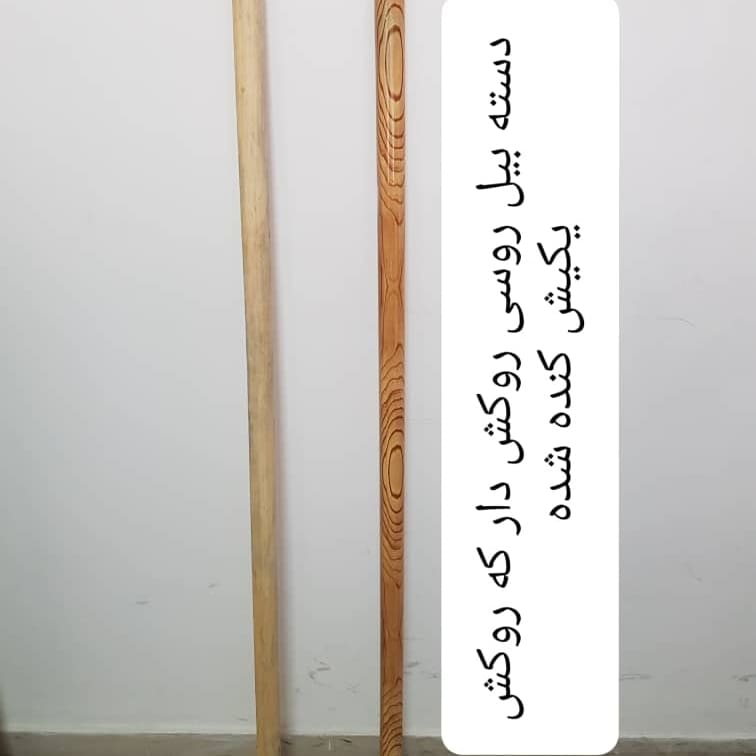 دسته بیل روسی روکش دار که روکش
یکیش کنده شده